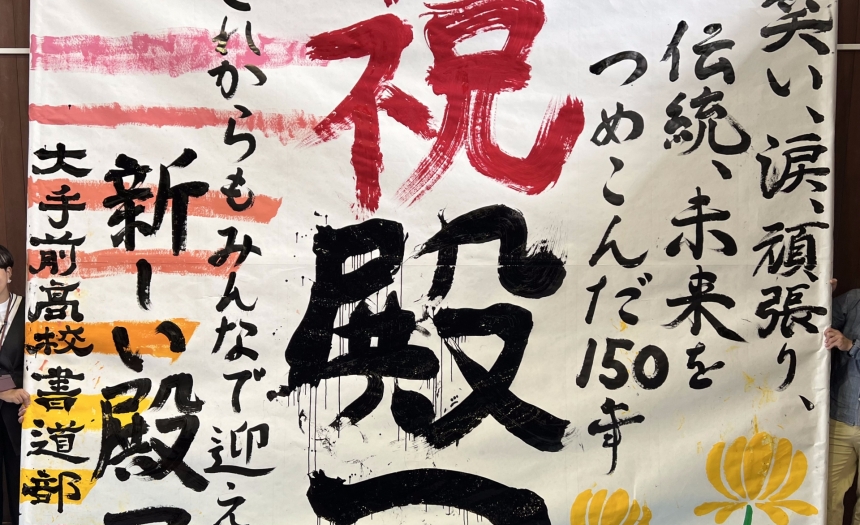 笑い、涙、頑張り、
伝統、未来を
つめこんだ150年
祝殿
これからもみんなで迎え
新しい殿
大手前高校書道部